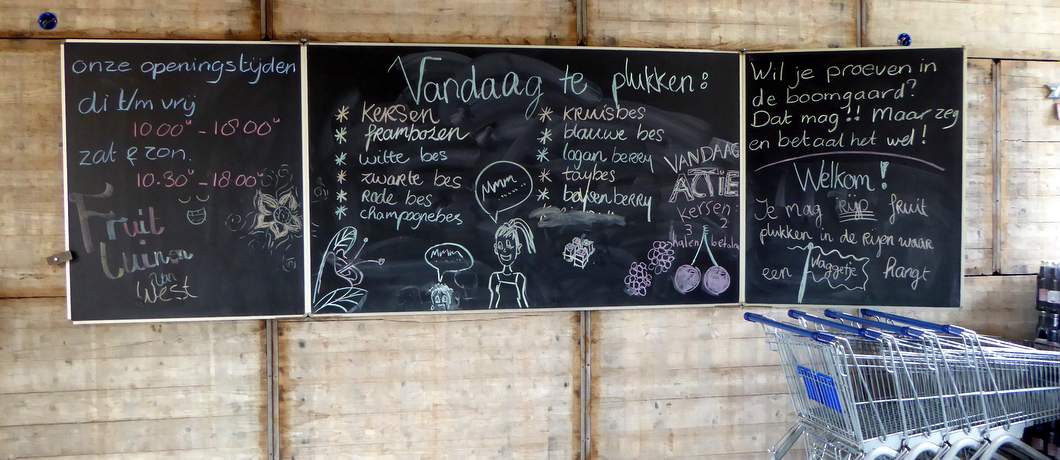 onze openingstijden
di t/m vrij
10.00u - 18.00u
zat & zon.
10.30u - 18.00u
Fruit
tuinen
van
West
Vandaag te plukken:
* kersen
* frambozen
* witte bes
* zwarte bes
* Rode bes
* champagnebes
* kruisbes
* blauwe bes
* logan berry
* taybes
* boysenberry
Mmm
Mmmm
VANDAAG
ACTIE
kersen:
3 2
halen betalen
Wil je proeven in
de boomgaard?
Dat mag!! Maar zeg
en betaal het wel!
Welkom!
Je mag RIJP fruit
plukken in de rijen waar
een vlaggetje hangt